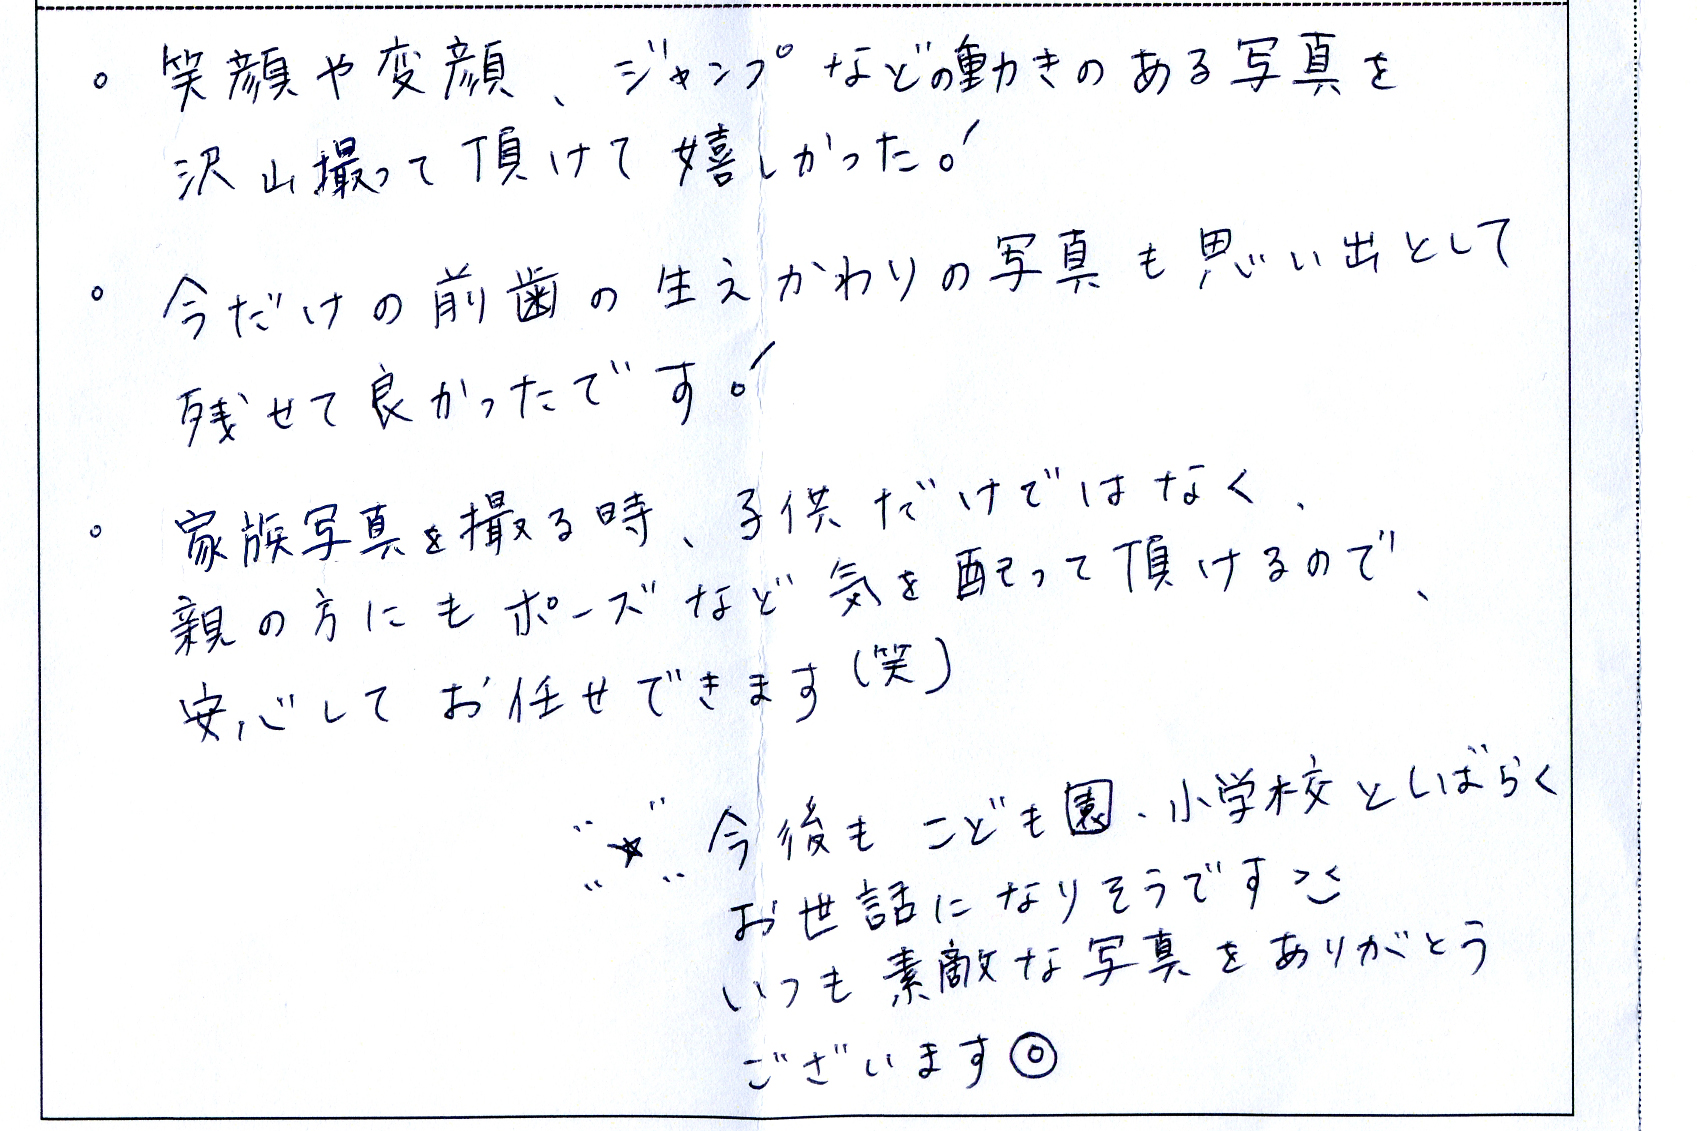 。笑顔や変顔、ジャンプなどの動きのある写真を
沢山撮って頂けて嬉しかった!
。今だけの前歯の生えかわりの写真も思い出として
残せて良かったです!
。家族写真を撮る時、子供だけではなく、
親の方にもポーズなど気を配って頂けるので、
安心してお任せできます(笑)
☆今後もこども園、小学校としばらく
お世話になりそうです
いつも素敵な写真をありがとう
ございます◎